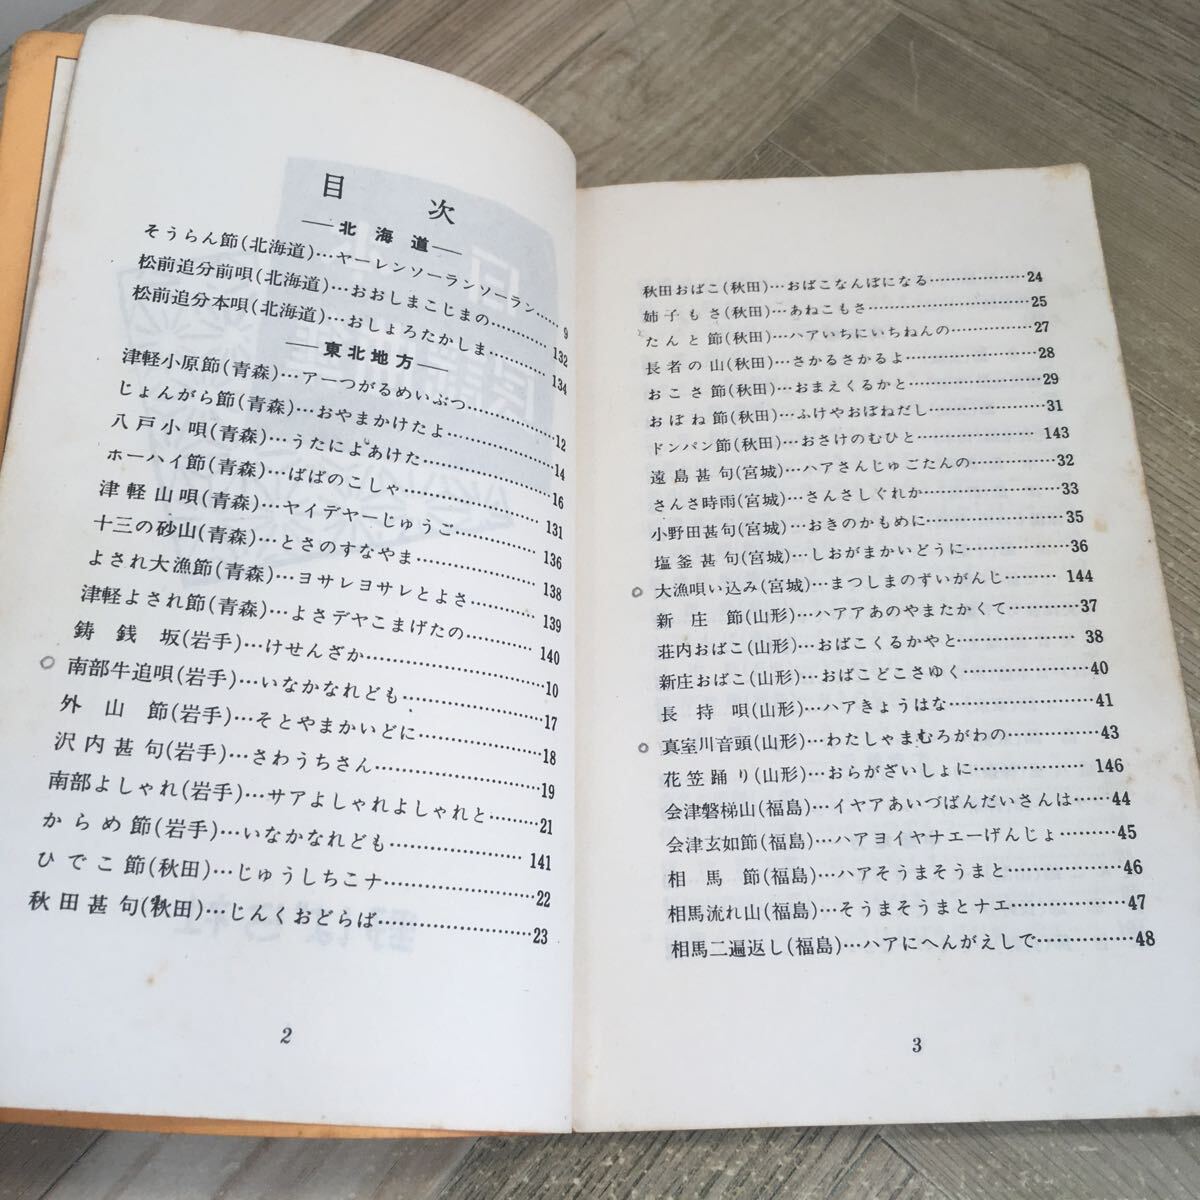 目次
―北海道―
そうらん節(北海道)…ヤーレンソーランソーラン……9
松前追分前唄(北海道)…おおしまこじまの…………132
松前追分本唄(北海道)…おしょろたかしま…………134
―東北地方―
津軽小原節(青森)…アーつがるめいぶつ…………12
じょんがら節(青森)…おやまかけたよ…………14
八戸小唄(青森)…うたによあけた…………16
ホーハイ節(青森)…ばばのこしゃ…………131
津軽山唄(青森)…ヤイデヤーじゅうご…………136
十三の砂山(青森)…とさのすなやま…………138
よされ大漁節(青森)…ヨサレヨサレとよさ…………139
津軽よされ節(青森)…よさデヤこまげたの…………140
鋳銭坂(岩手)…けせんざか…………10
南部牛追唄(岩手)…いなかなれども…………17
外山節(岩手)…そとやまかいどに…………18
沢内甚句(岩手)…さわうちさん…………19
南部よしゃれ(岩手)…サアよしゃれよしゃれと…………21
からめ節(岩手)…いなかなれども…………141
ひでこ節(秋田)…じゅうしちこナ…………22
秋田甚句(秋田)…じんくおどらば…………23
2
秋田おばこ(秋田)…おばこなんぼになる…………24
姉子もさ(秋田)…あねこもさ…………25
たんと節(秋田)…ハアいちにいちねんの…………27
長者の山(秋田)…さかるさかるよ…………28
おこさ節(秋田)…おまえくるかと…………29
おぼね節(秋田)…ふけやおぼねだし…………31
ドンパン節(秋田)…おさけのむひと…………143
遠島甚句(宮城)…ハアさんじゅごたんの…………32
さんさ時雨(宮城)…さんさしぐれか…………33
小野田甚句(宮城)…おきのかもめに…………35
塩釜甚句(宮城)…しおがまかいどうに…………36
大漁唄い込み(宮城)…まつしまのずいがんじ…………144
新庄節(山形)…ハアアあのやまたかくて…………37
荘内おばこ(山形)…おばこくるかやと…………38
新庄おばこ(山形)…おばこどこさゆく…………40
長持唄(山形)…ハアきょうはな…………41
真室川音頭(山形)…わたしゃまむろがわの…………43
花笠踊り(山形)…おらがざいしょに…………146
会津磐梯山(福島)…イヤアあいづばんだいさんは……44
会津玄如節(福島)…ハアヨイヤナエーげんじょ………45
相馬節(福島)…ハアそうまそうまと…………46
相馬流れ山(福島)…そうまそうまとナエ…………47
相馬二遍返し(福島)…ハアにへんがえしで…………48
3